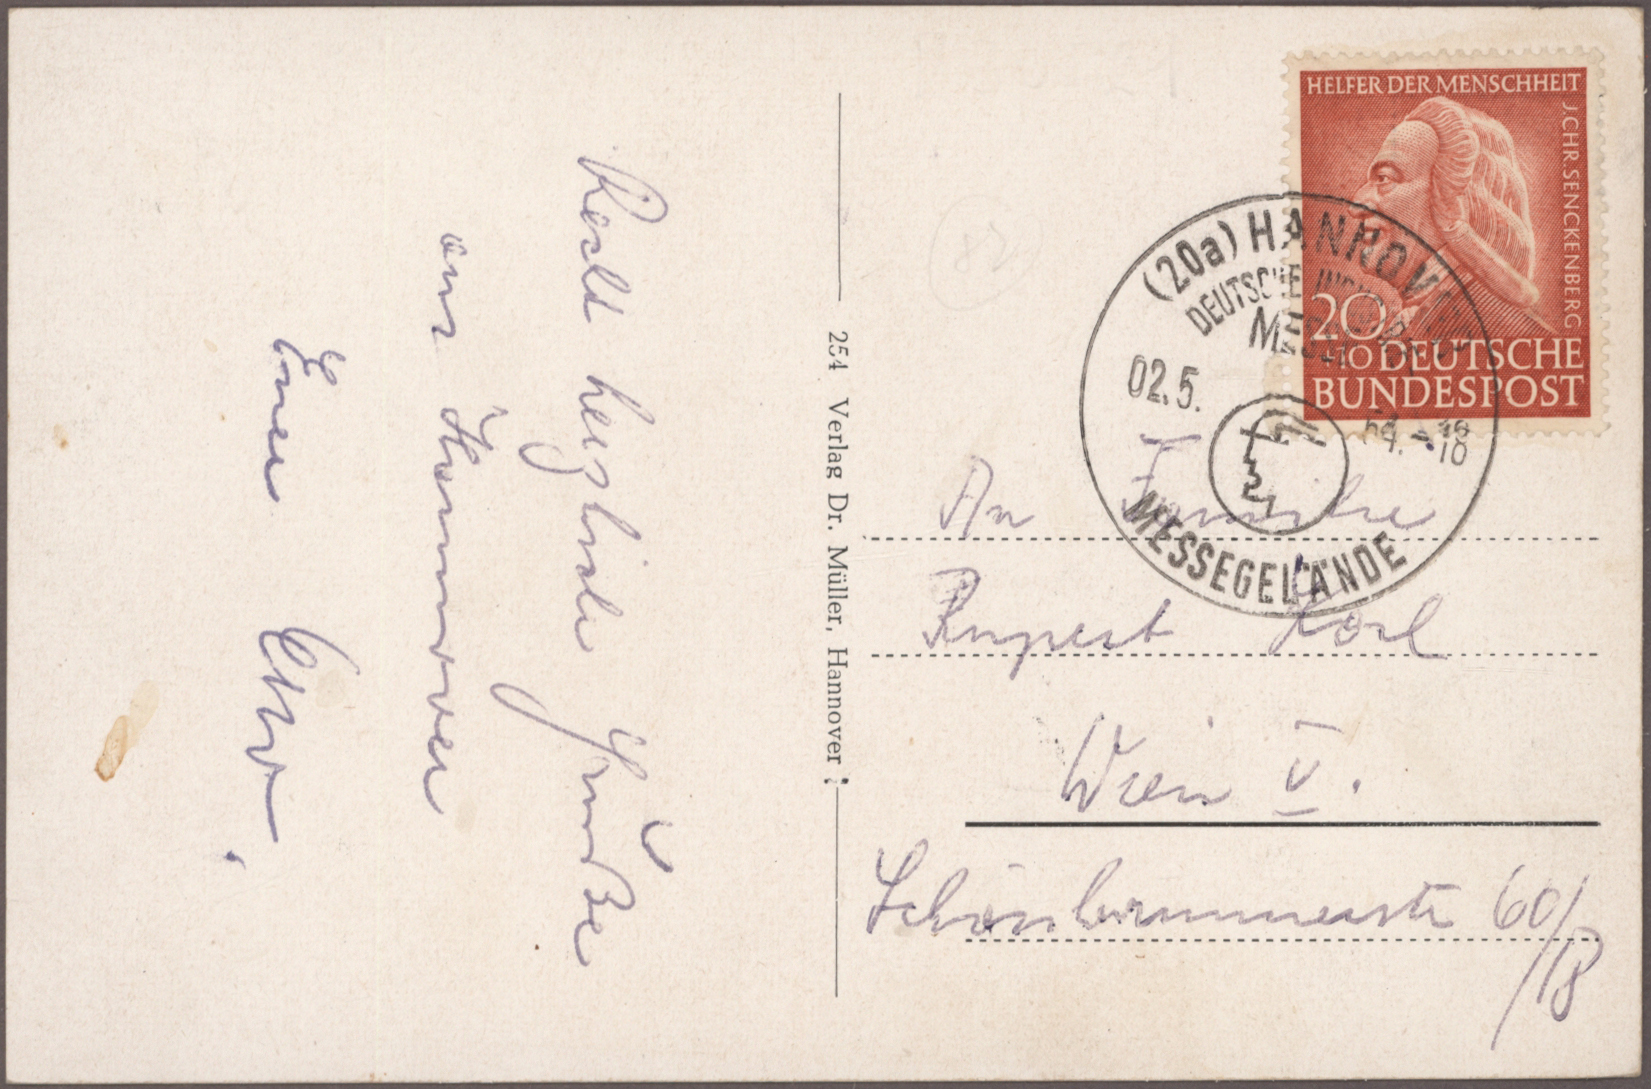 Recht herzliche Grüße
aus Hannover
Euer
254 Verlag Dr. Müller, Hannover
HELFER DER MENSCHHEIT
J.CHR.SENCKENBERG
20
+10 DEUTSCHE
BUNDESPOST
(20a) HANNOVER
DEUTSCHE INDUSTRIE
MESSE
02.5. 54.-18
MESSEGELÄNDE
An Familie
Rupert
Wien V.
Schönbrunnerstr 60/18
82